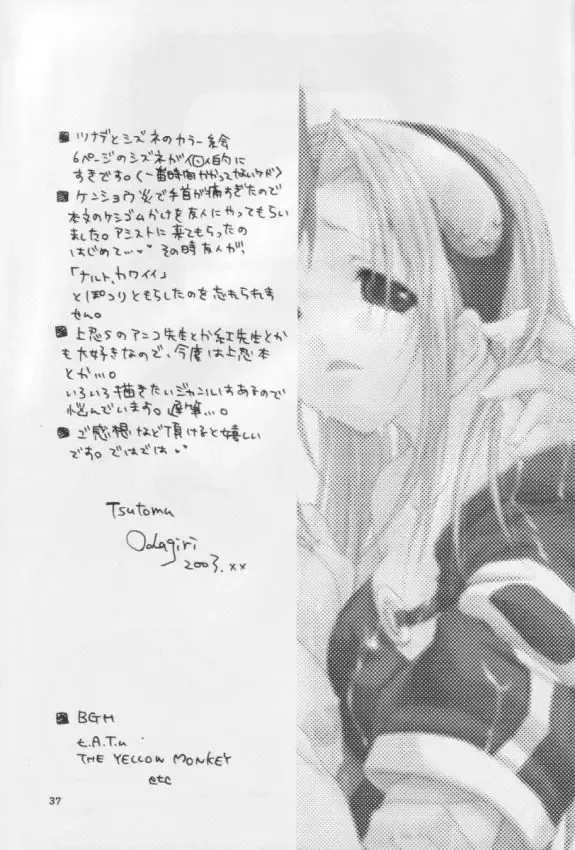 ツナデとシズネのカラー絵
6ページのシズネが個人的に
すきです。(一番時間かかってないケド)
ケンショウ炎で手首が痛すぎたので
本文のケシゴムかけを友人にやってもらい
ました。アシストに来てもらったの
はじめて…♥ その時友人が、
「ナルト、カワイイ」
とぽつりともらしたのを忘れられま
せん。
上忍Sのアンコ先生とか紅先生とか
も大好きなので、今度は上忍本
とか…。
いろいろ描きたいジャンルはあるので
悩んでいます。遅筆…。
ご感想など頂けると嬉しい
です。ではでは♥
Tsutomu
Odagiri
2003.××
BGM
t.A.T.u
THE YELLOW MONKEY
etc
37